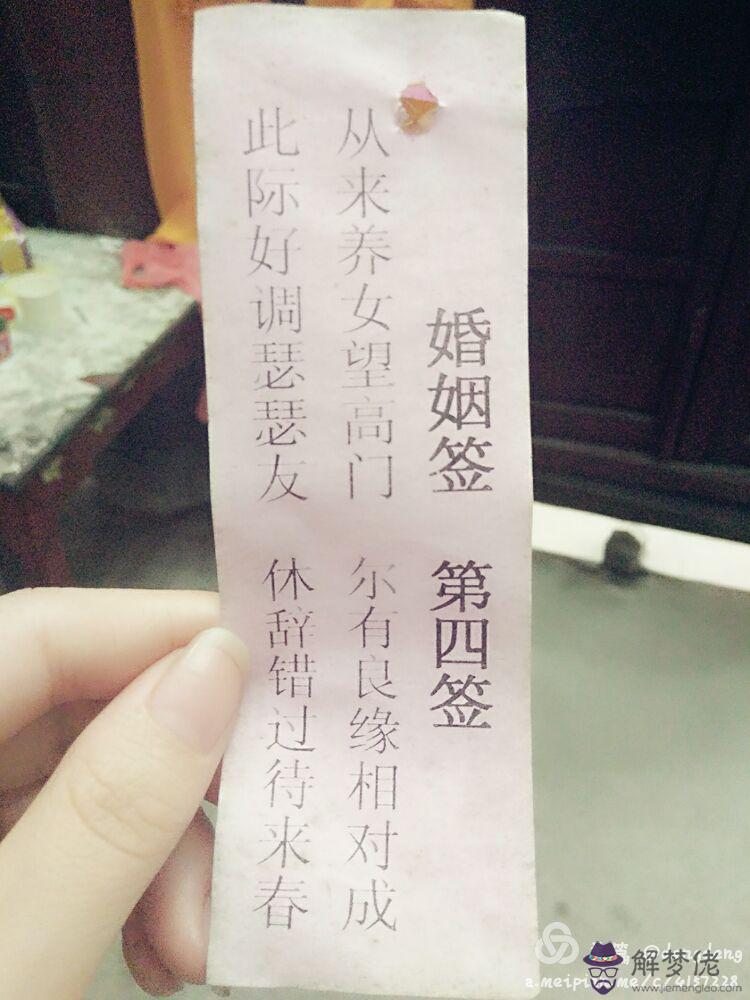 婚姻签 第四签
从来养女望高门 尔有良缘相对成
此际好调瑟瑟友 休辞错过待来春
解梦佬
www.jiemenglao.com
a.meipian.me/c/4157228